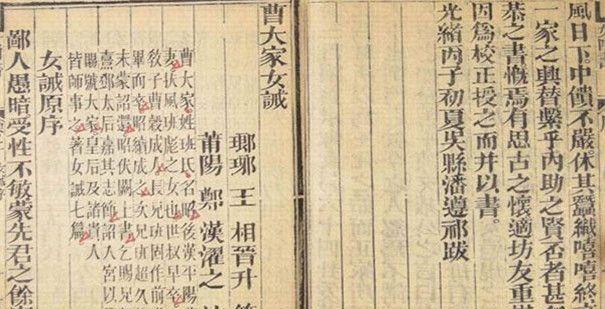 風日下中饋不嚴休其蠶織嘻嘻終
一家之興替繫乎內助之賢否者甚
恭之書慨焉有思古之懷適坊友重
因爲校正授之而并以書
光緒丙子初夏吳縣潘遵祁跋
曹大家女誡
瑯琊王相晉升
莆陽鄭漢濯之
曹大家姓班氏名昭後漢平陽
妻扶風班彪之女也世叔早卒
敎子曹穀成人長兄班固作前
畢而卒昭續成之次兄班超久
未蒙詔還昭伏闕上書乞賜兄
熹鄧太后嘉其志節詔入宮以
賜號大家皇后及諸貴人
皆師事之著女誡七篇
女誡原序
鄙人愚暗受性不敏蒙先君之餘